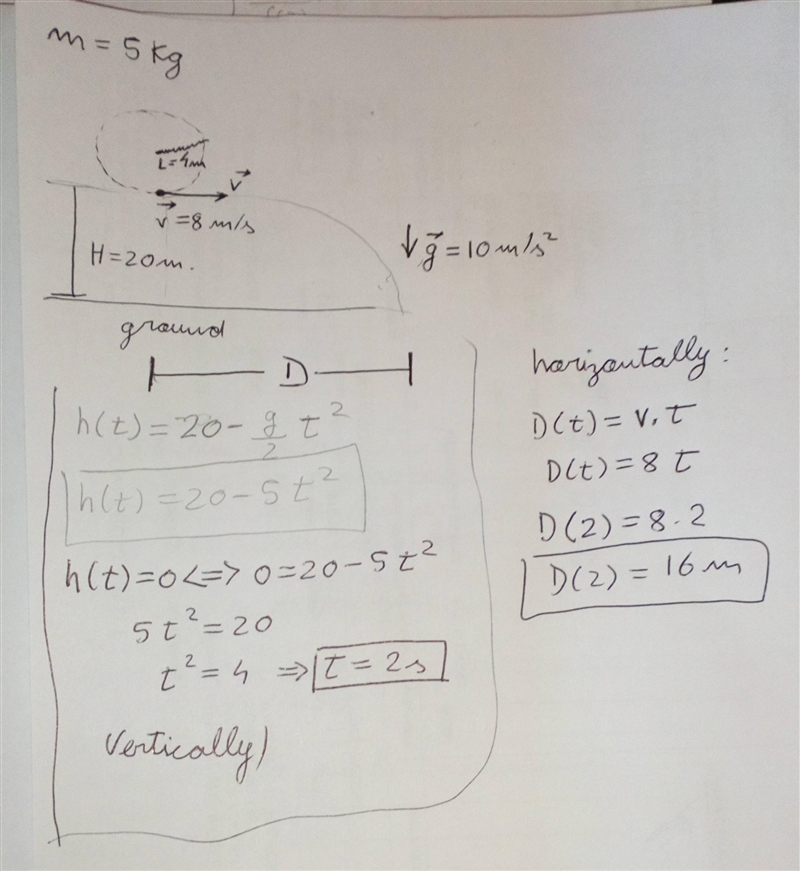 m = 5 kg
L=4m
v⃗
v⃗ = 8 m/s
H = 20 m.
↓ g⃗ = 10 m/s²
ground
D
h(t) = 20 - g/2 t²
h(t) = 20 - 5 t²
h(t) = 0 <=> 0 = 20 - 5 t²
5 t² = 20
t² = 4 => t = 2s
Vertically)
horizontally:
D(t) = v. t
D(t) = 8 t
D(2) = 8.2
D(2) = 16 m